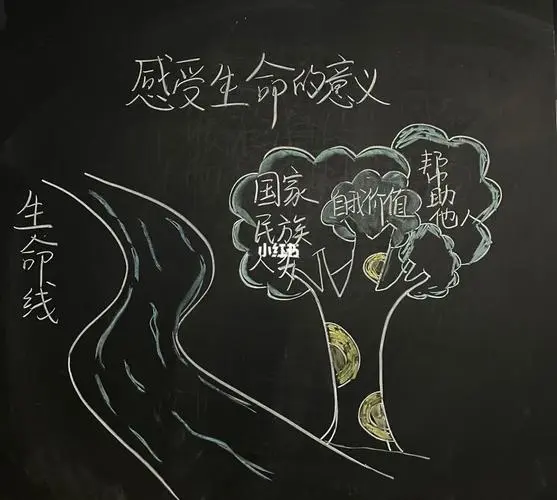 感受生命的意义
生命线
国家
民族
人类
自我价值
帮助他人
小红书